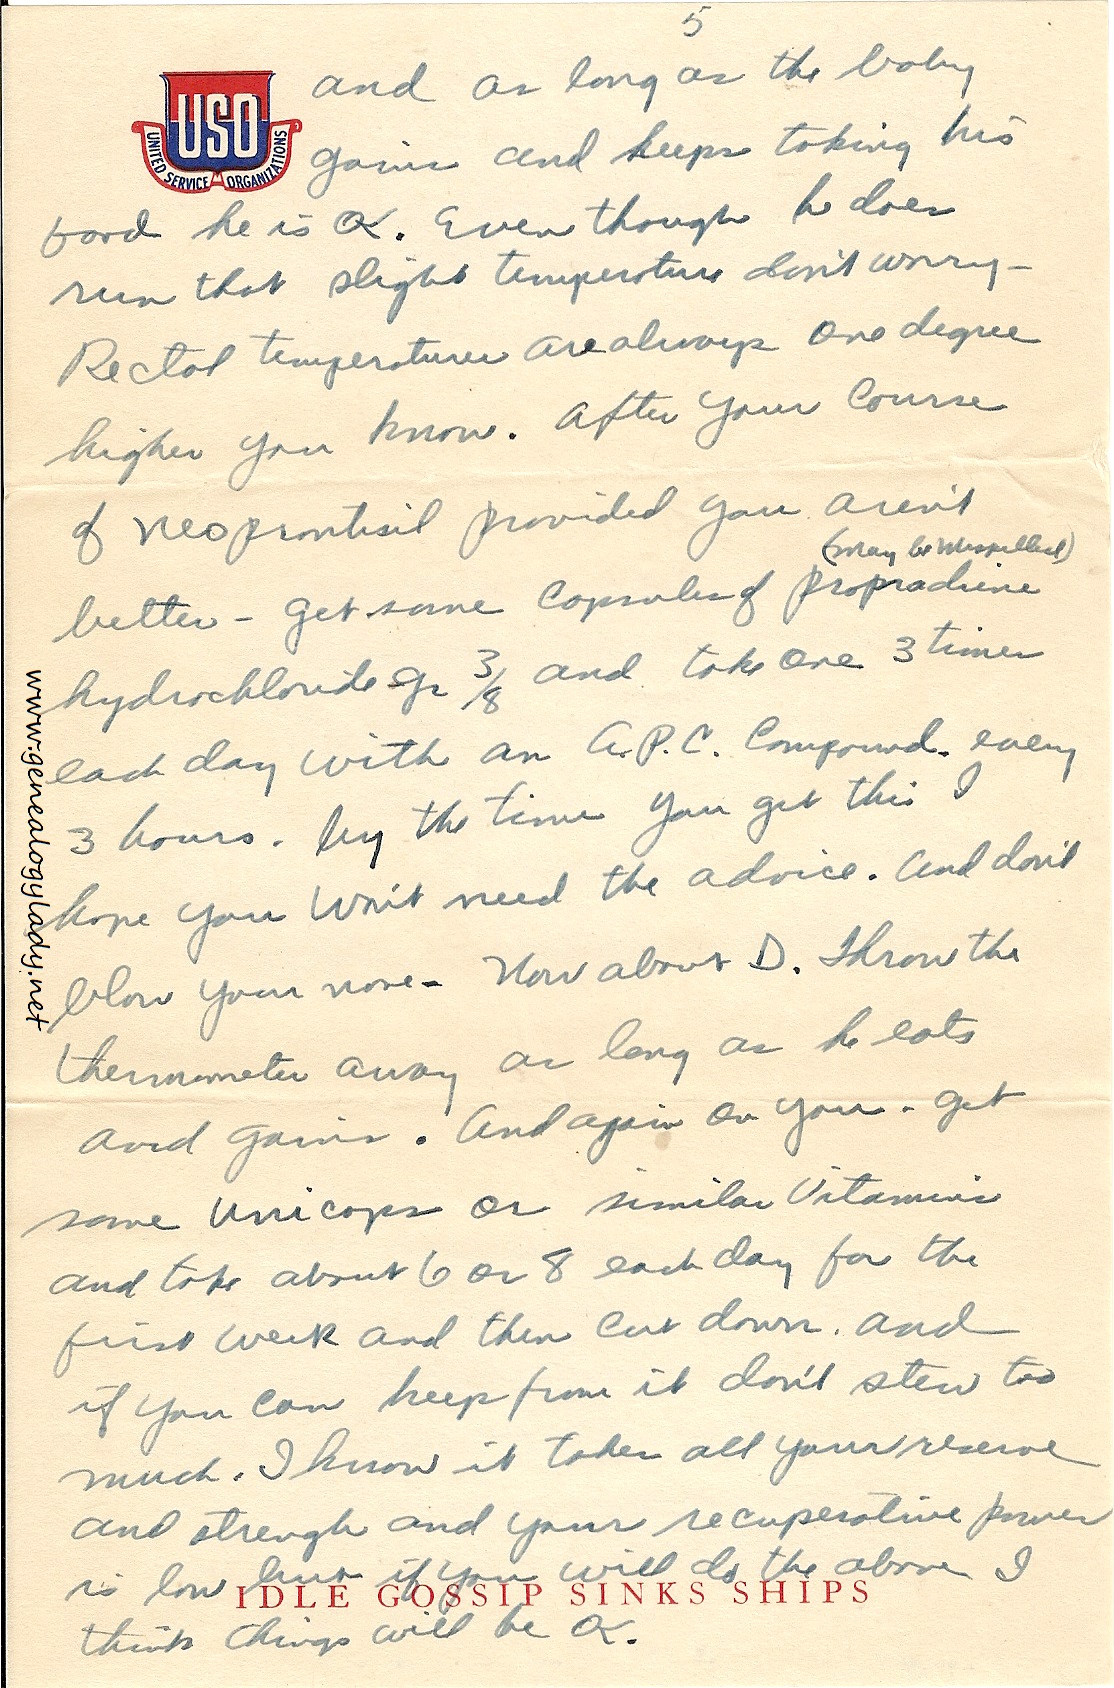 5
USO
UNITED SERVICE ORGANIZATIONS
and as long as the baby
gains and keeps taking his
food he is OK. Even though he does
run that slight temperature don't worry -
Rectal temperatures are always one degree
higher you know. After your course
of neoprontisil provided you aren't
(may be misspelled)
better - get some capsules of propradrine
hydrochloride gr 3/8 and take one 3 times
each day with an A.P.C. Compound. every
3 hours. by the time you get this I
hope you won't need the advice. And don't
blow your nose - Now about D. Throw the
thermometer away as long as he eats
and gains. And again on you - get
some Unicaps or similar Vitamins
and take about 6 or 8 each day for the
first week and then cut down. and
if you can keep from it don't stew too
much. I know it takes all your reserve
and strength and your recuperative power
is low but if you will do the above I
IDLE GOSSIP SINKS SHIPS
think things will be OK.
www.genealogylady.net